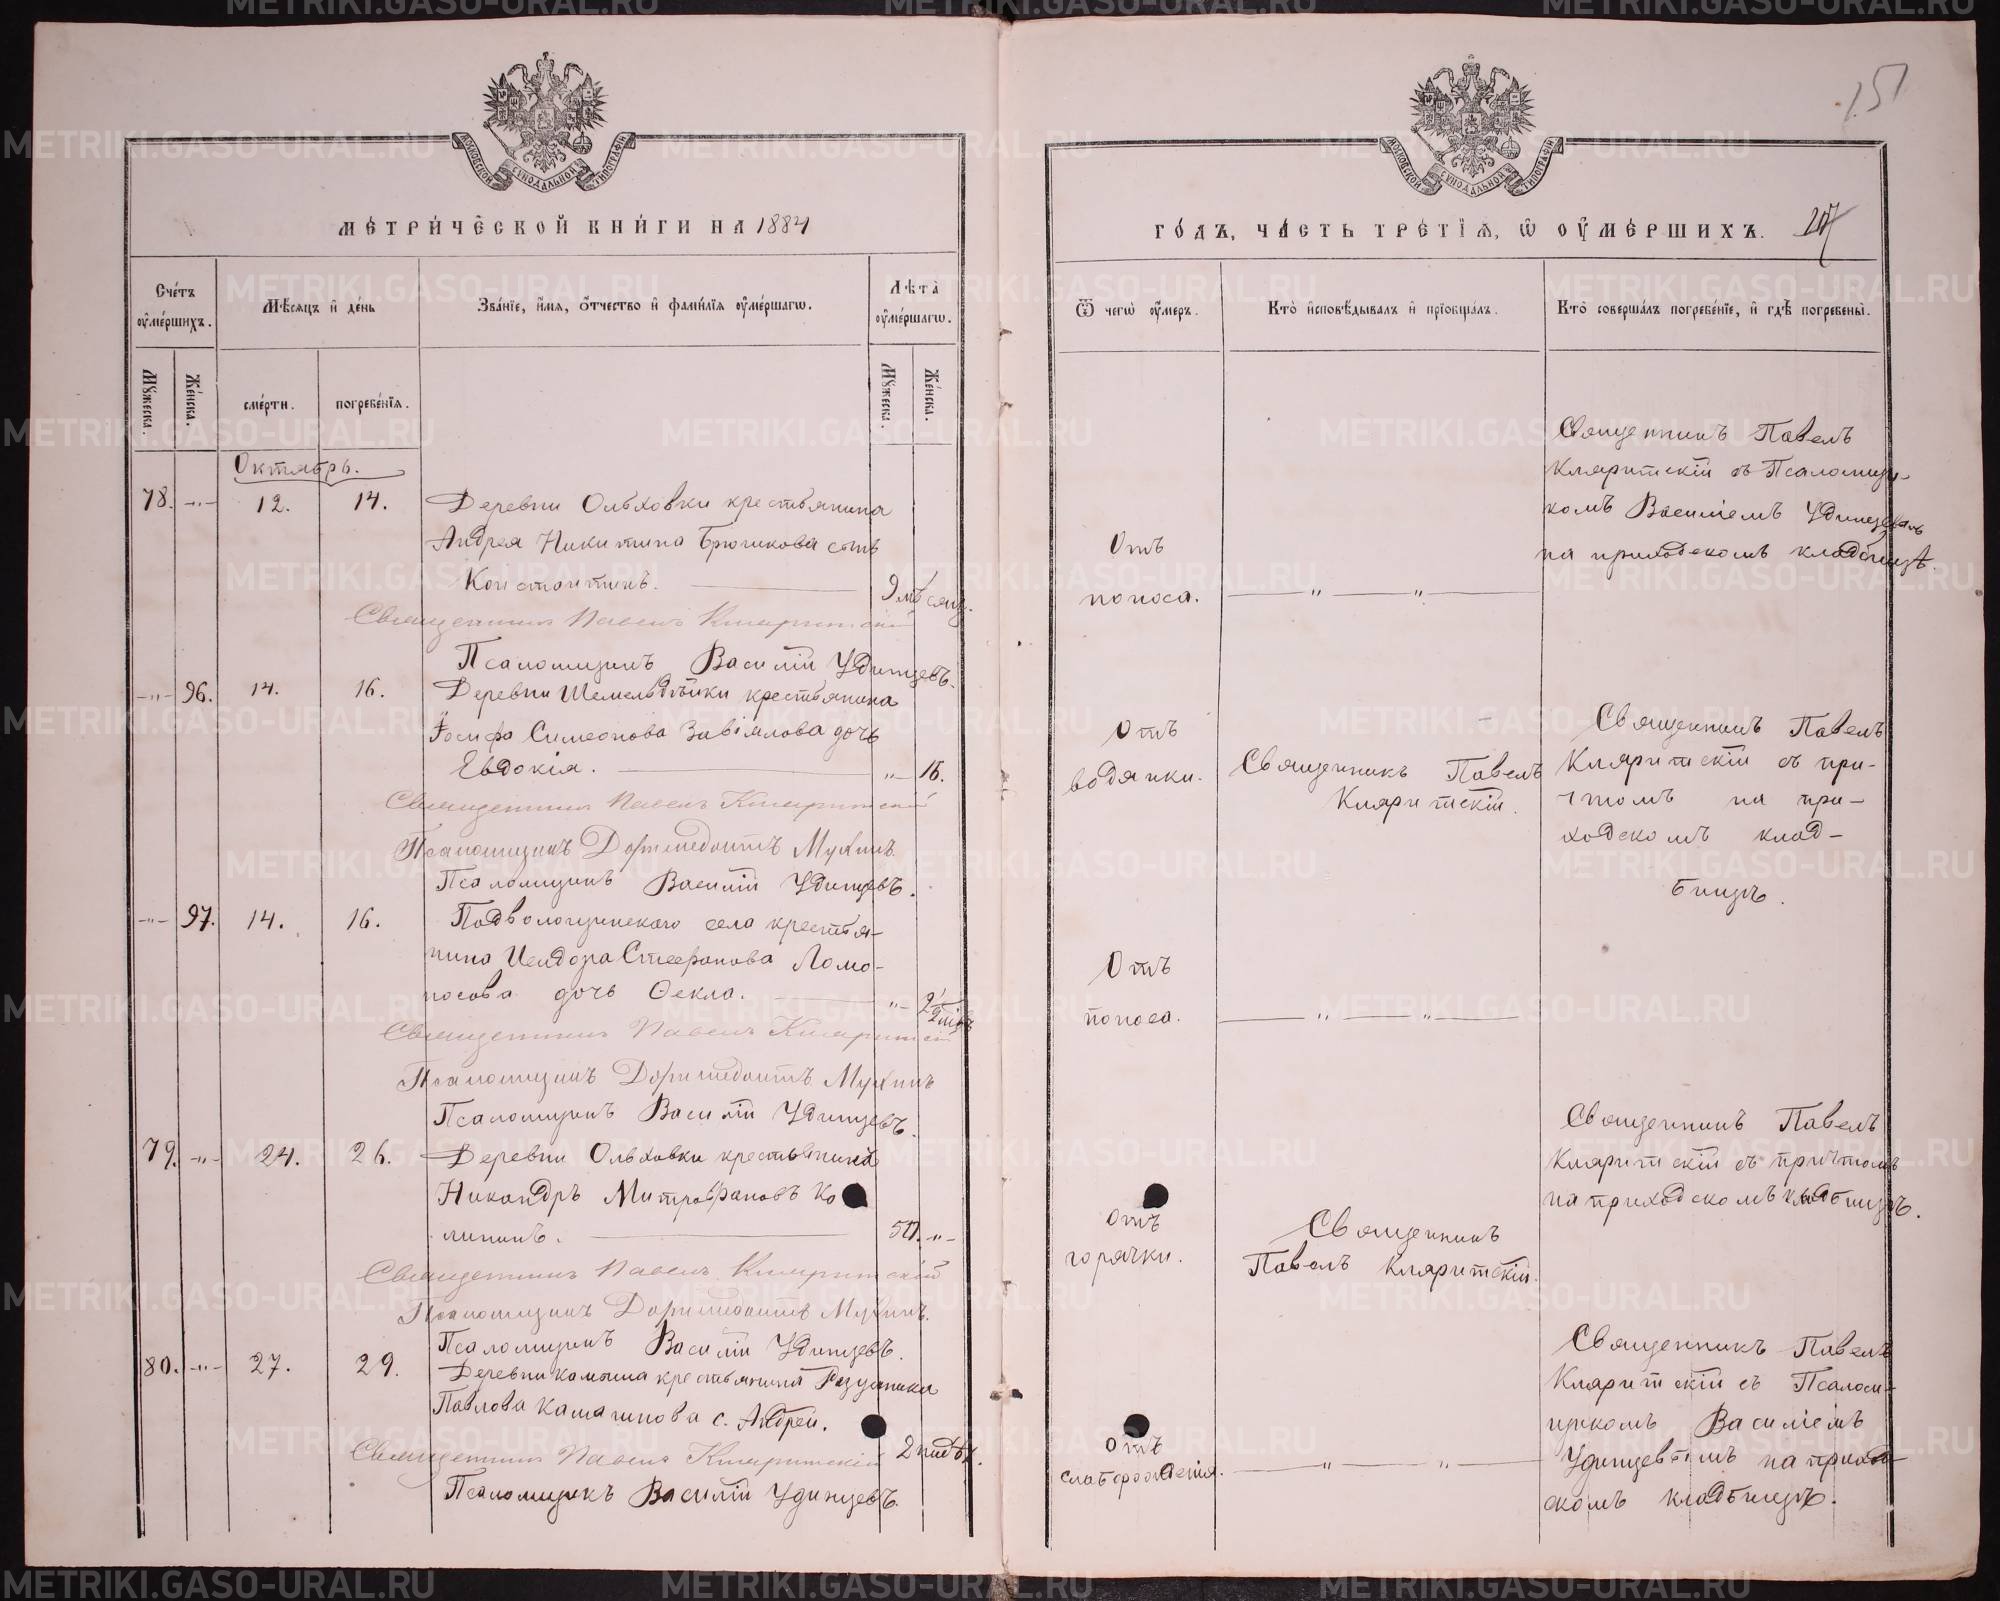 151
МОСКОВСКОЙ СУНОДАЛЬНОЙ ТИПОГРАФІИ
МЕТРИЧЕСКОЙ КНИГИ НА 1884
Счетъ оумершихъ.
Мѣсяцъ и день
Званіе, имя, отчество и фамилія оумершагω.
Лѣта оумершагω.
Мужеска.
Женска.
смерти.
погребенія.
Мужеска.
Женска.
Октябрь.
78. -"- 12. 14. Деревни Ольховки крестьянина
Андрея Никитина Брюшкова сынъ
Константинъ. 9 мѣсяц.
Священникъ Павелъ Кларитскій
Псаломщикъ Василій Удинцевъ.
-"- 96. 14. 16. Деревни крестьянина
Іосифа Симеонова Завіялова дочь
Евдокія. "- 15.
Священникъ Павелъ Кларитскій
Псаломщикъ Доримедонтъ Мухинъ.
Псаломщикъ Василій Удинцевъ.
-"- 97. 14. 16. Подволошинскаго села крестья-
нина Исидора Стефанова Ломо-
носова дочь Ѳекла. "-
Священникъ Павелъ Кларитскій
Псаломщикъ Доримедонтъ Мухинъ
Псаломщикъ Василій Удинцевъ.
79. -"- 24. 26. Деревни Ольховки крестьянинъ
Никандръ Митрофановъ Ко
лининъ. 50. -"-
Священникъ Павелъ Кларитскій
Псаломщикъ Доримедонтъ Мухинъ.
Псаломщикъ Василій Удинцевъ.
80. -"- 27. 29. Деревни крестьянина
Павлова с. Андрей.
2 недѣл.
Священникъ Павелъ Кларитскій
Псаломщикъ Василій Удинцевъ.
МОСКОВСКОЙ СУНОДАЛЬНОЙ ТИПОГРАФІИ
ГОДЪ, ЧАСТЬ ТРЕТІЯ, Ѡ ОУМЕРШИХЪ.
Ѿ чегω оумеръ.
Кто исповѣдывалъ и пріобщалъ.
Кто совершалъ погребеніе, и гдѣ погребены.
Отъ
поноса.
-"- -"-
Священникъ Павелъ
Кларитскій съ Псаломщи-
комъ Василіемъ Удинцевымъ
на приходскомъ кладбищѣ.
Отъ
водянки.
Священникъ Павелъ
Кларитскій.
Священникъ Павелъ
Кларитскій съ при-
чтомъ на при-
ходскомъ клад-
бищѣ.
Отъ
поноса.
-"- -"-
Отъ
горячки.
Священникъ
Павелъ Кларитскій.
Священникъ Павелъ
Кларитскій съ причтомъ
на приходскомъ кладбищѣ.
Отъ
слаборожденія.
-"- -"-
Священникъ Павелъ
Кларитскій съ Псалом-
щикомъ Василіемъ
Удинцевымъ на приход-
скомъ кладбищѣ.
METRIKI.GASO-URAL.RU